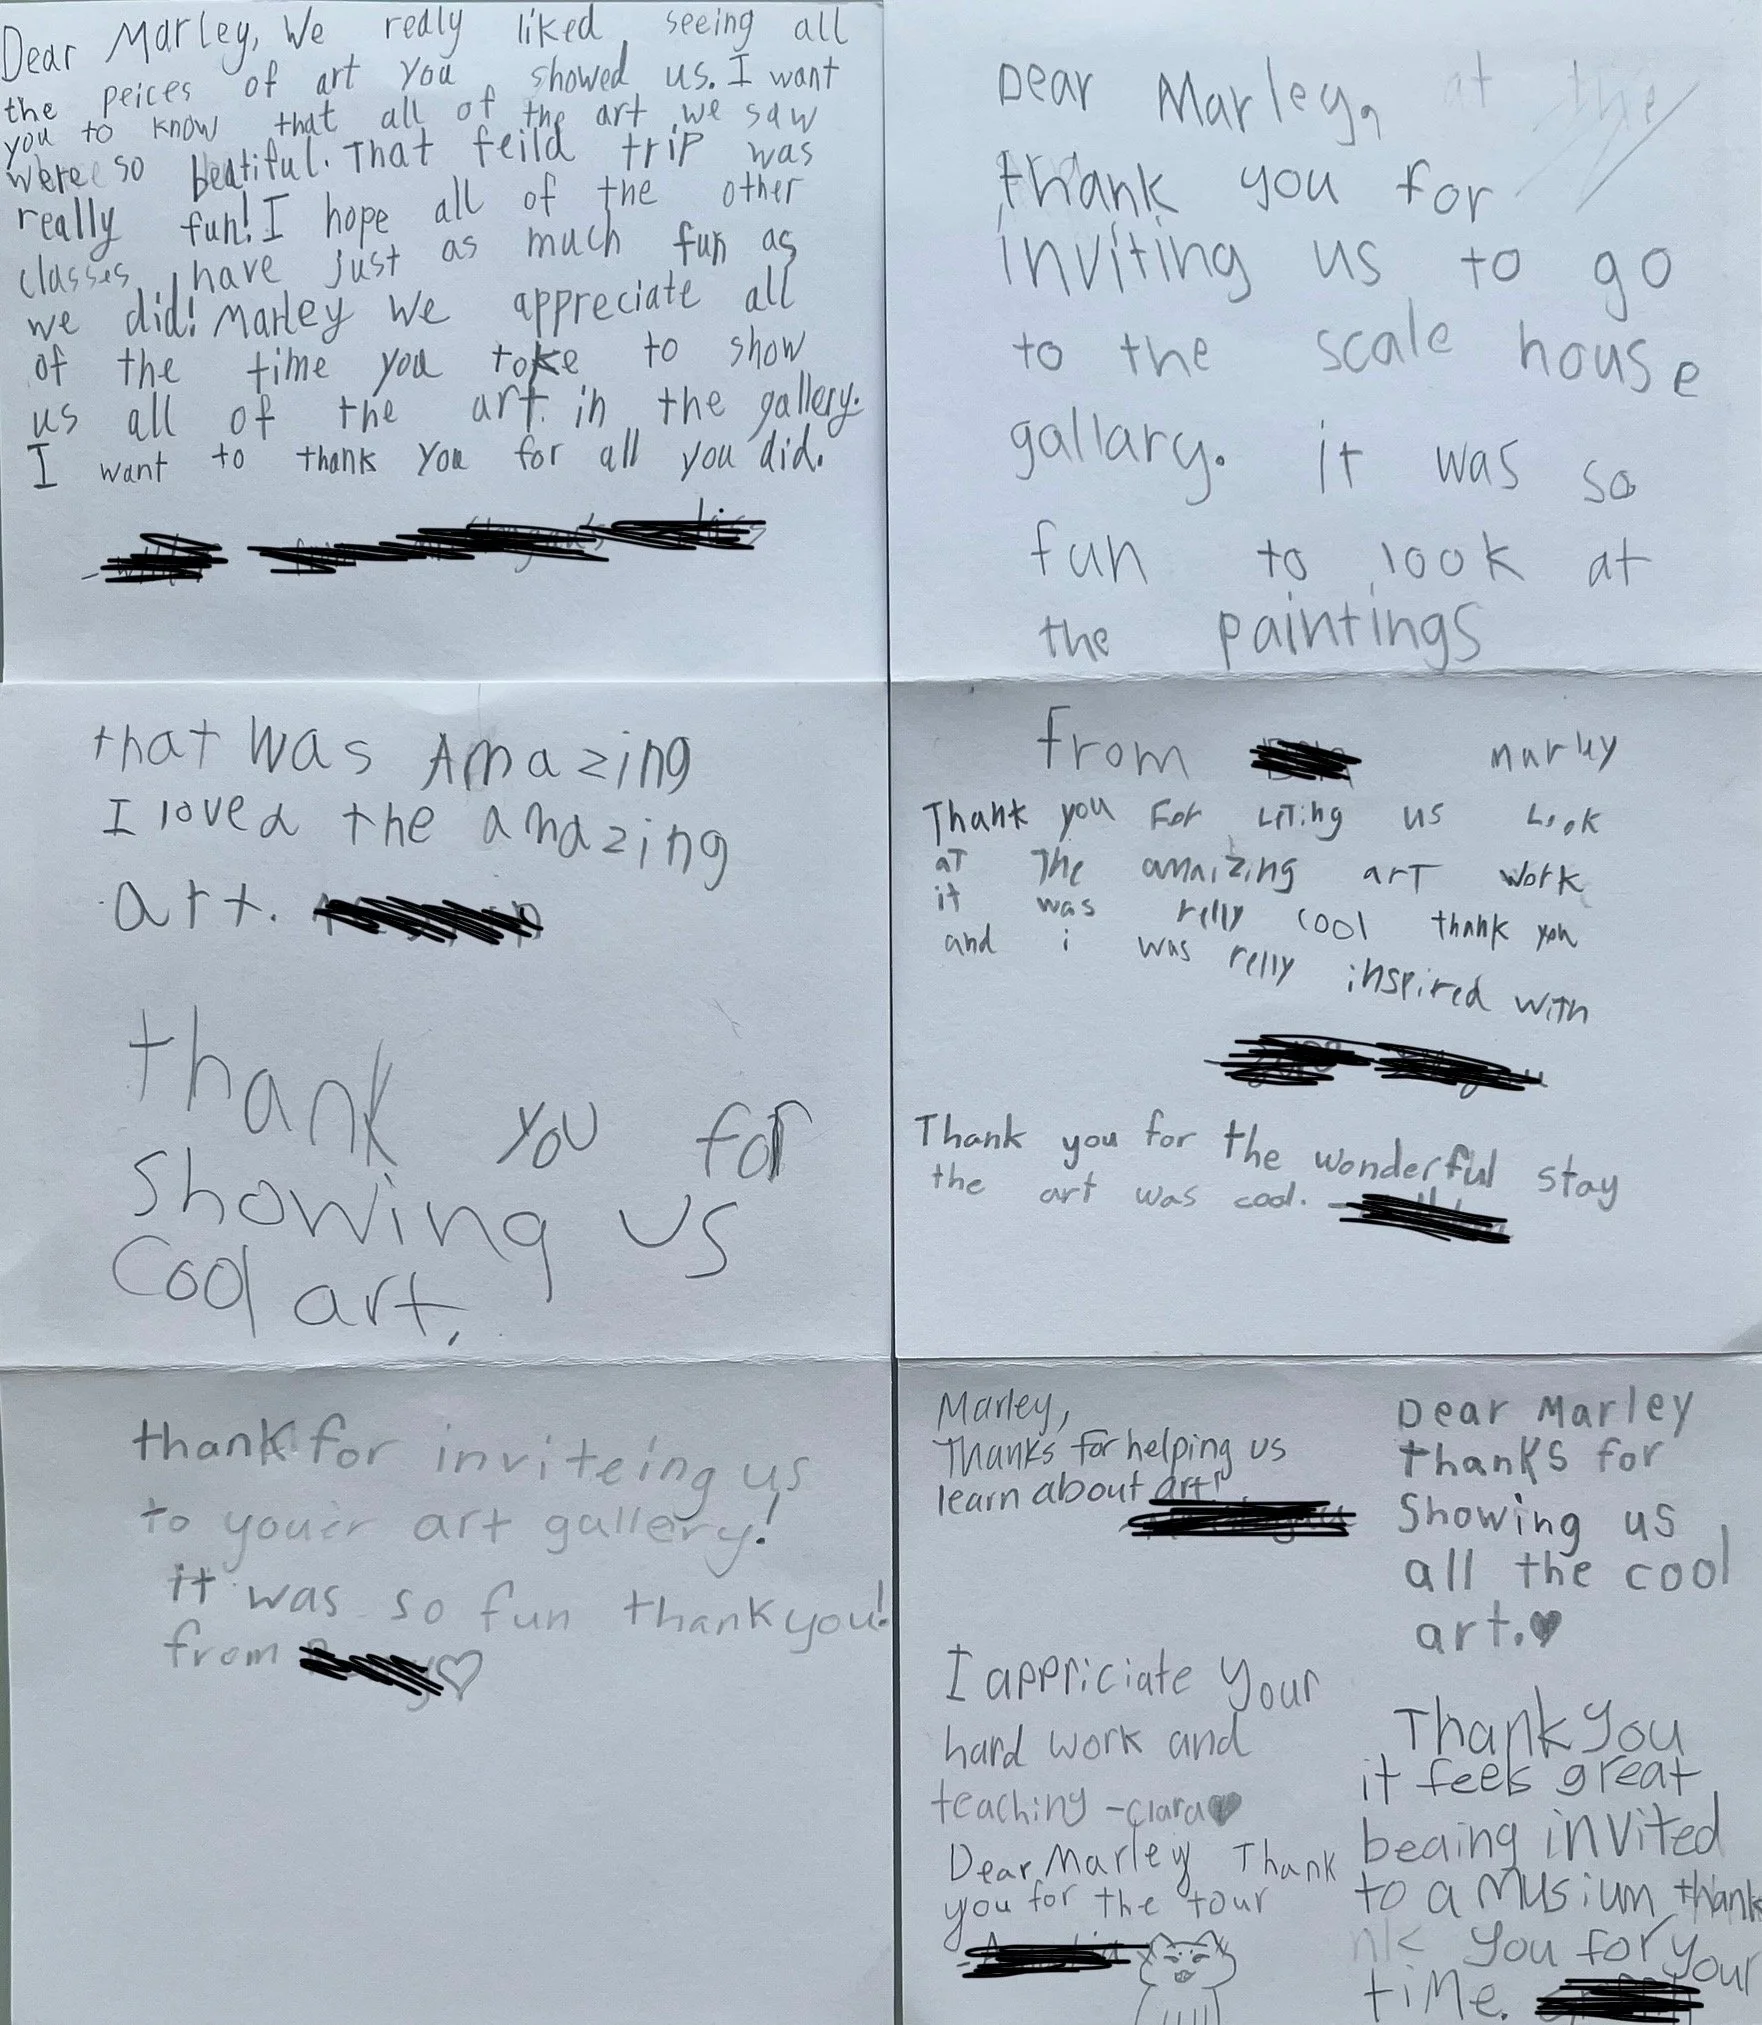 Dear Marley, We redly liked seeing all
the peices of art you showed us. I want
you to know that all of the art we saw
were so beatiful. That feild trip was
really fun! I hope all of the other
classes have just as much fun as
we did! Marley We appreciate all
of the time you toke to show
us all of the art in the gallery.
I want to thank you for all you did.
Dear Marley, at the
thank you for
inviting us to go
to the scale house
gallary. it was so
fun to look at
the paintings
that was Amazing
I loved the amazing
art.
thank you for
showing us
cool art.
from
marley
Thank you For LeTing us Look
aT The amaizing arT work
it was relly cool thank you
and i was relly inspired with
Thank you for the wonderful stay
the art was cool.
thank for inviteing us
to youer art gallery!
it was so fun thank you!
from
Marley,
Thanks for helping us
learn about art!
Dear Marley
thanks for
Showing us
all the cool
art.
I appriciate your
hard work and
teaching -Clara
Dear Marley Thank
you for the tour
Thank you
it feels great
beaing invited
to a musium thank
nk you for your
time.